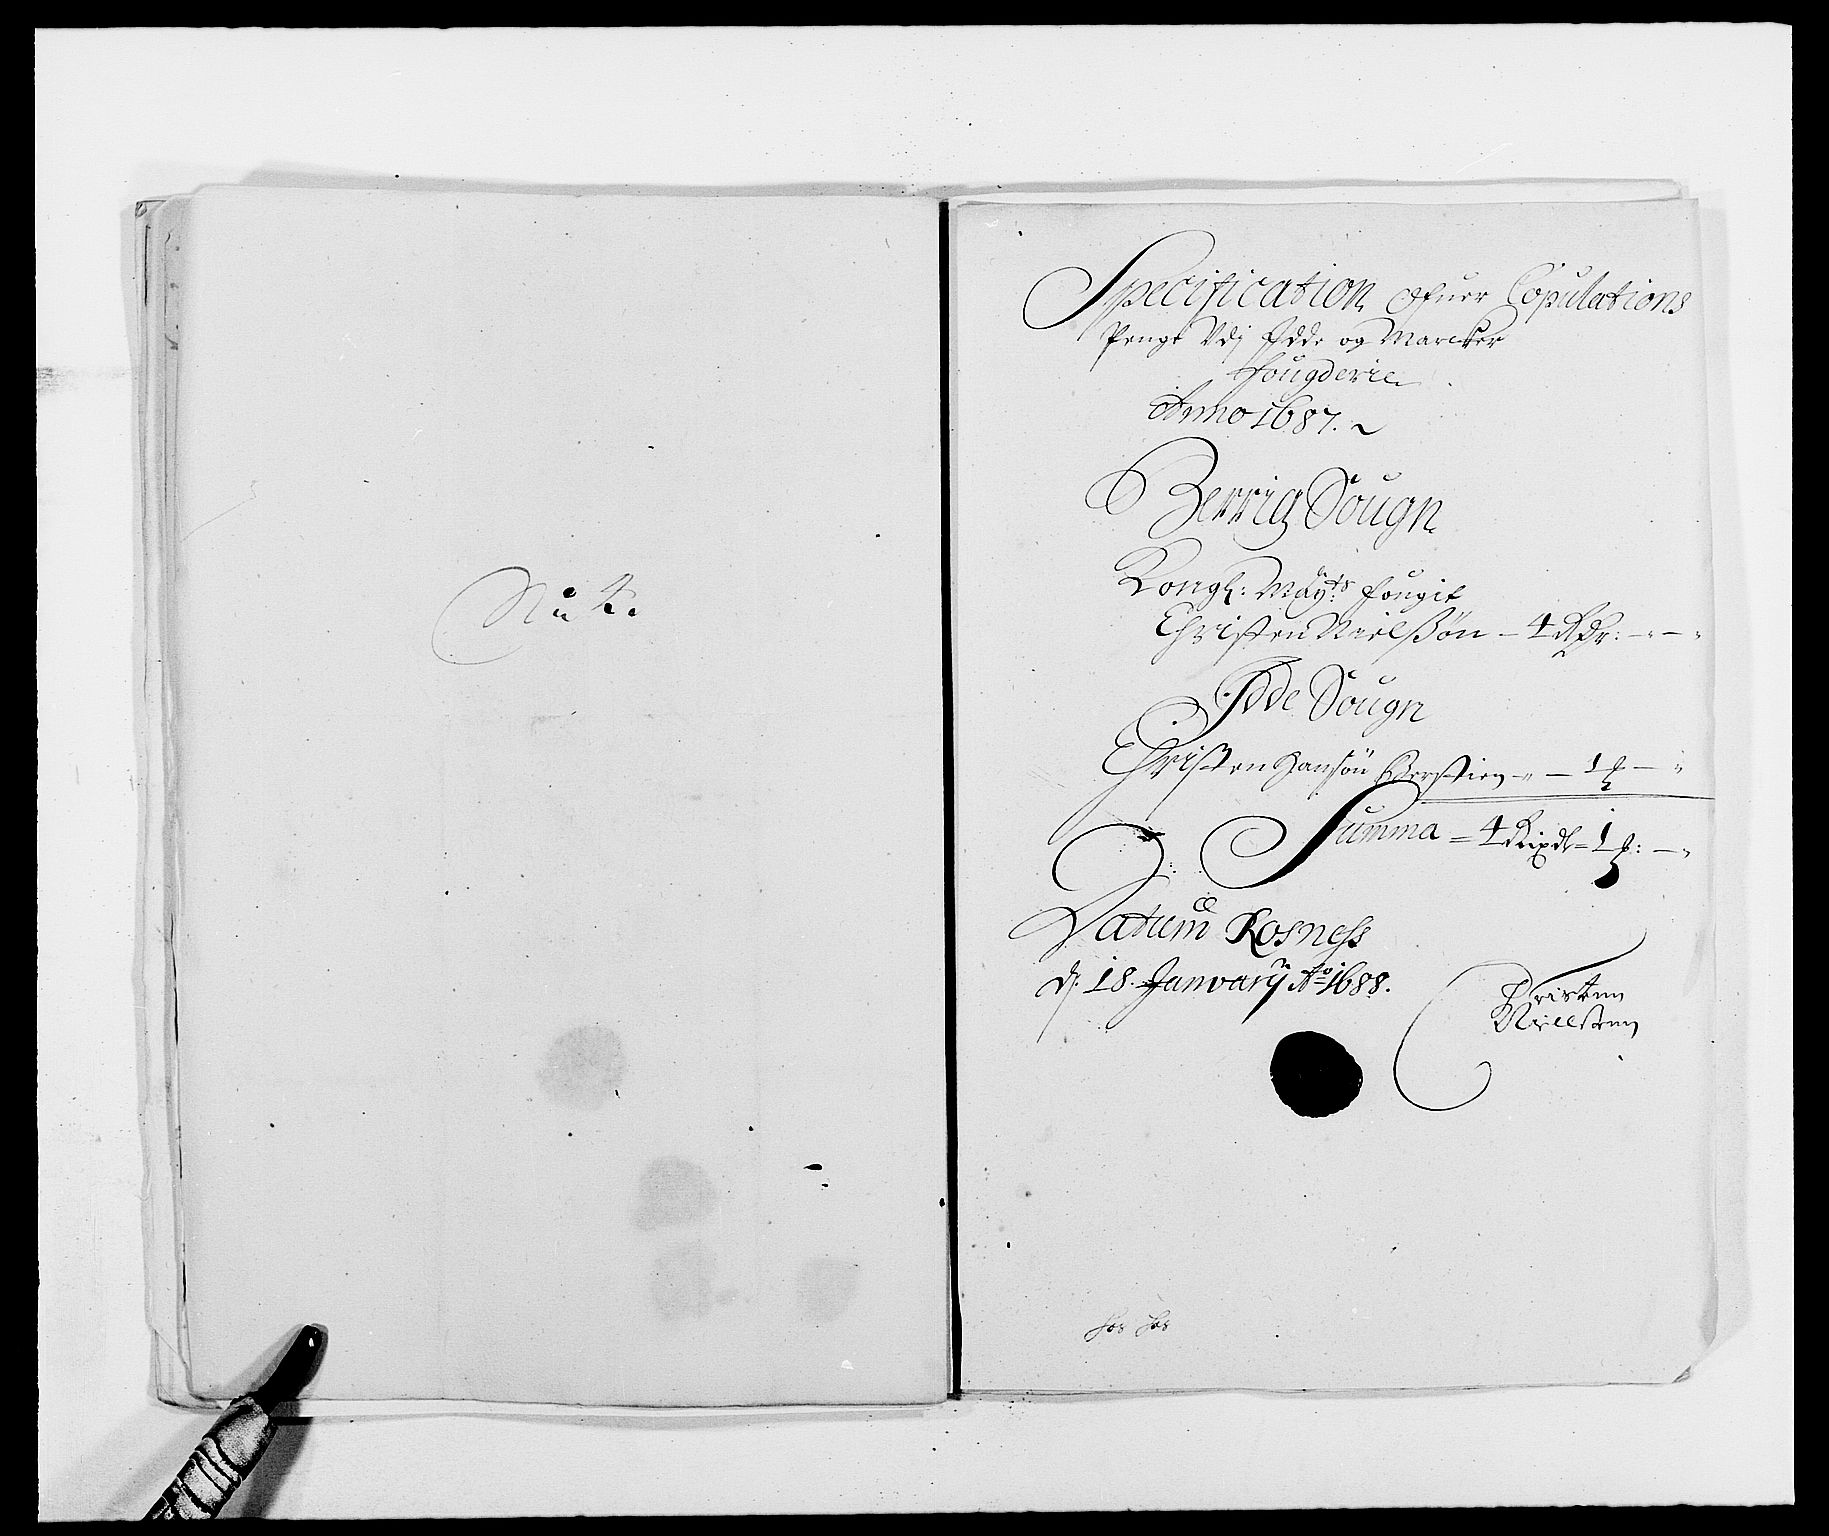 Specification Ofuer Copulations
Penge Vdj Idde og Marcker
Fougderie
Anno 1687.
Berrig Sougn
Kongl: Mayts fougit
Christen Nielssøn - 4 Rdr: - - -
Idde Sougn
Christen Hansøn - - 1 - -
Summa = 4 Rixdl = 1 : - -
Datum Rosness
dj: 18. January Ao 1688.
Christenn
Niellsenn